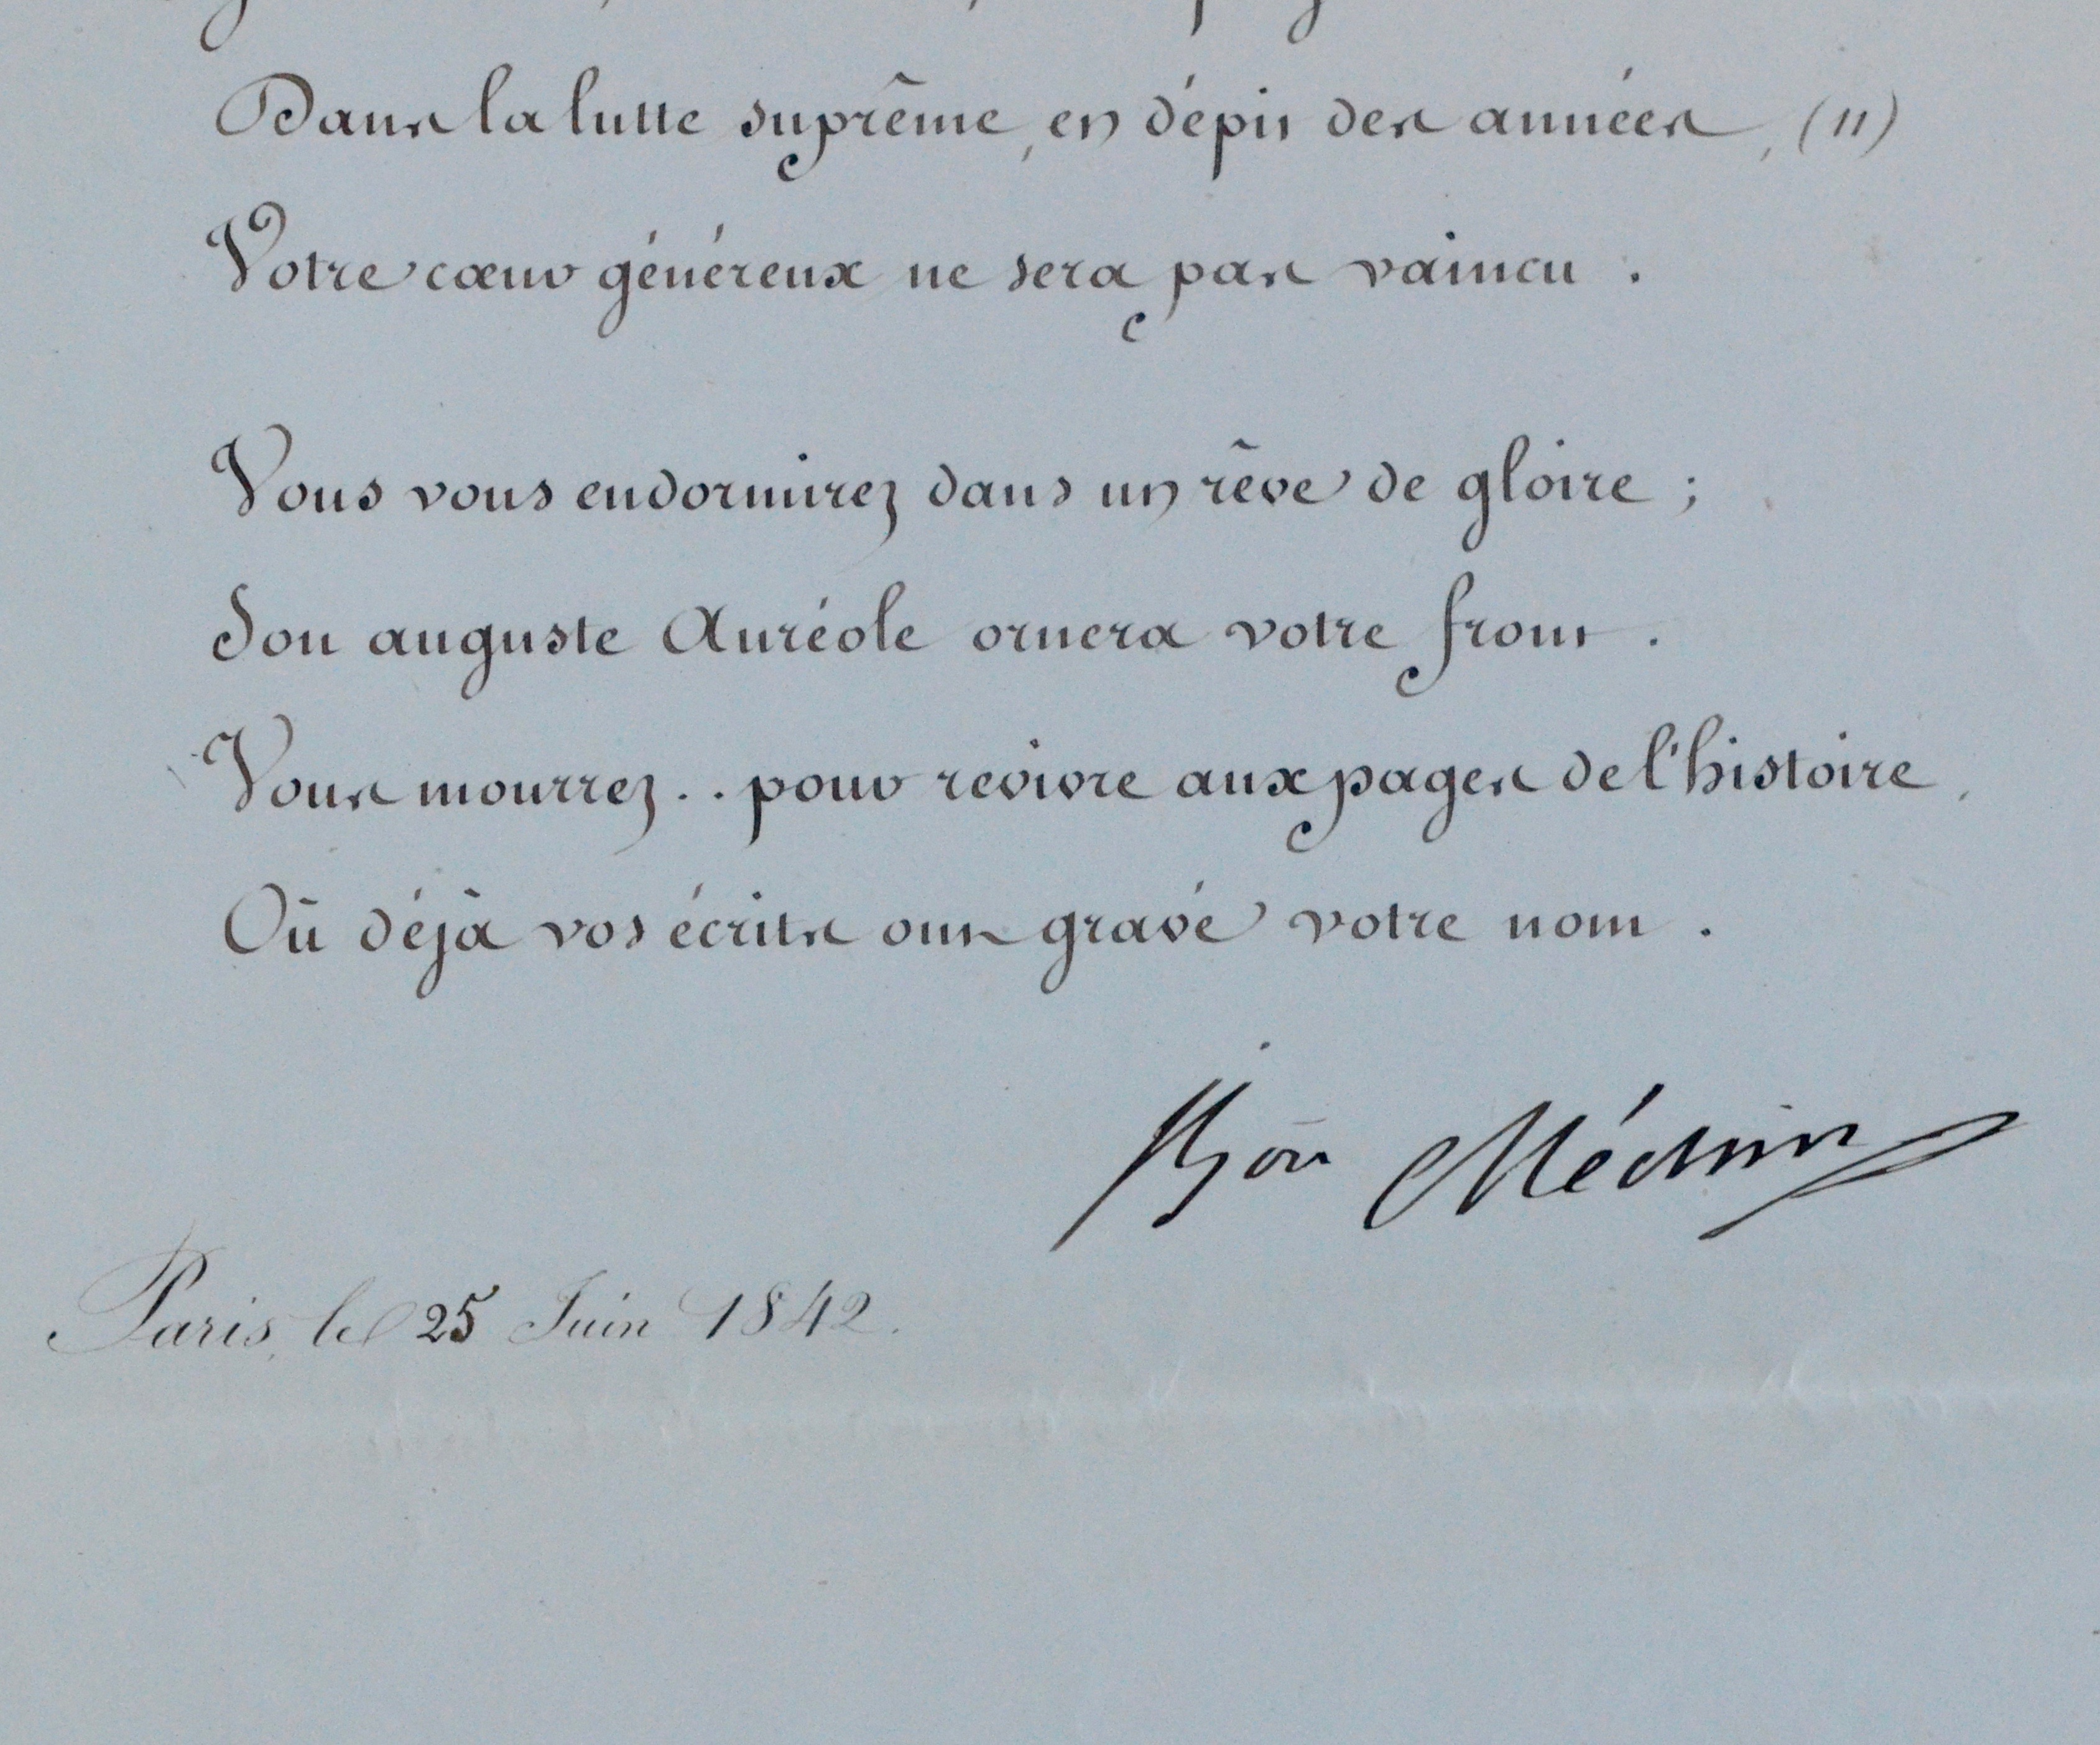 Dans la lutte suprême, en dépit des années, (11)
Votre cœur généreux ne sera pas vaincu.
Vous vous endormirez dans un rêve de gloire ;
Son auguste Auréole ornera votre front.
Vous mourrez.. pour revivre aux pages de l'histoire,
Où déjà vos écrits ont gravé votre nom.
Bon Méchin
Paris, le 25 Juin 1842.